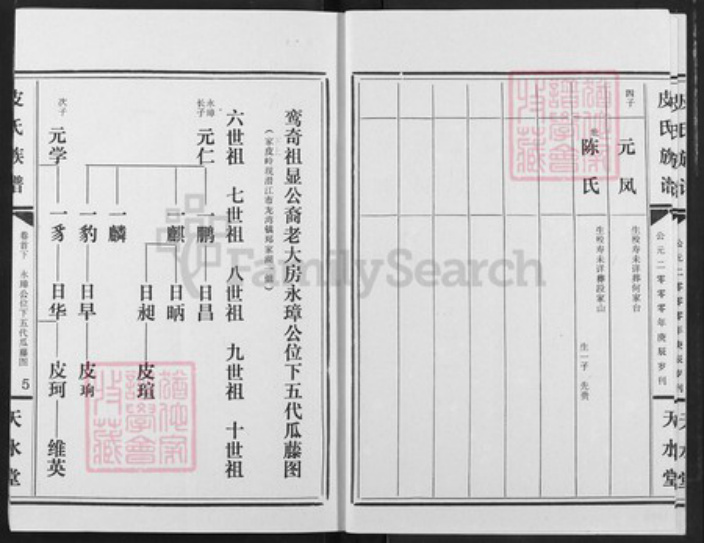 皮氏族谱
公元二零零零年庚辰岁刊
天水堂
四子
元凤
生殁寿未详葬何家台
陈氏
生殁寿未详葬段家山
生一子 先贵
鸾奇祖显公裔老大房永璋公位下五代瓜藤图
六世祖 七世祖 八世祖 九世祖 十世祖
永璋
长子
元仁
一鹏 日昌
一麒 日昞
日昶 皮瑄
一麟
一豹 日早 皮珦
次子
元学 一豸 日华 皮珂 维英
皮氏族谱
卷首下 永璋公位下五代瓜藤图 5
天水堂
FamilySearch